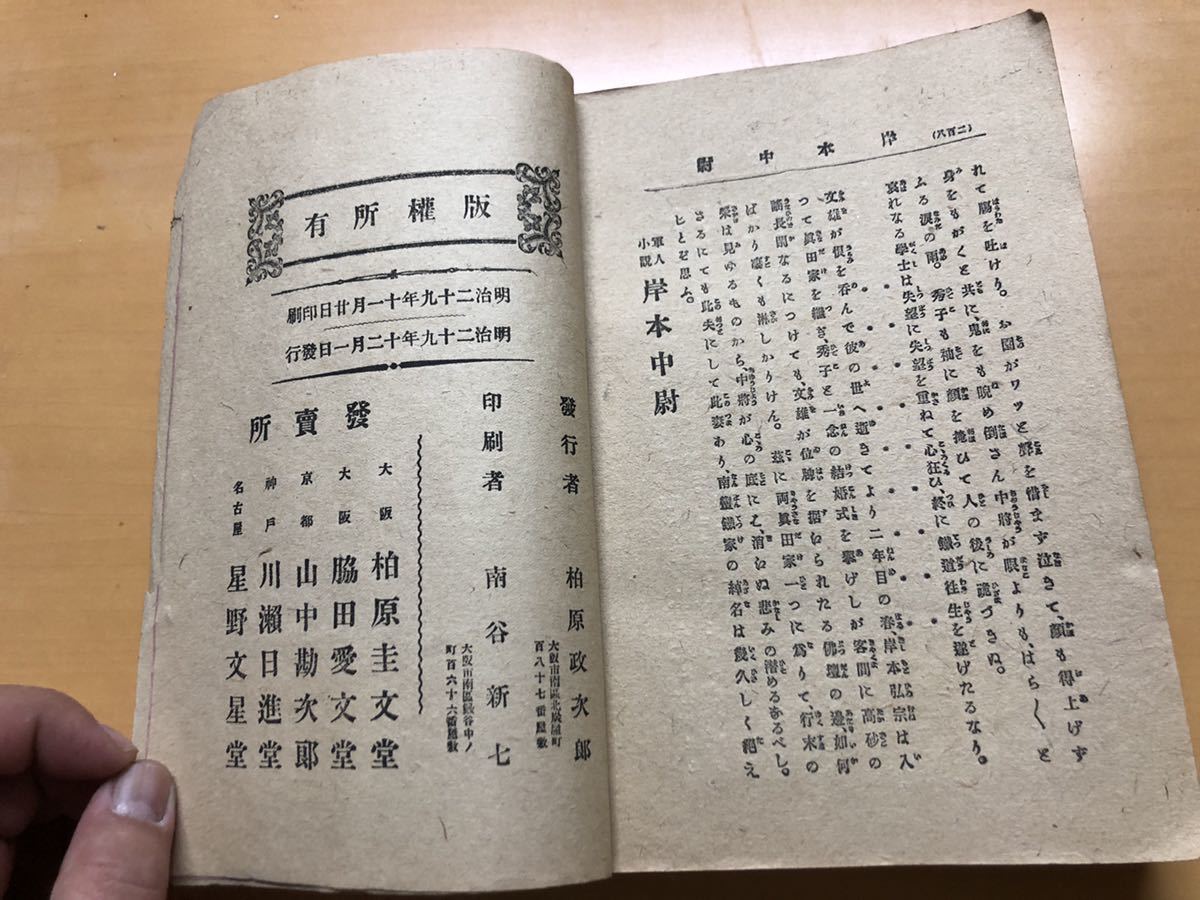 (二百八)
岸本中尉
れて膓を吐けり。お園がワッと聲を惜まず泣きて、顔も得上げず
身をもがくと共に、鬼をも睨め倒さん中將が眼よりも、はら〳〵と
ふる涙の雨。秀子も袖に顔を掩ひて人の後に詭づきぬ。
哀れなる學士は失望に失望を重ねて心狂ひ、終に鐵道往生を遂げたるなり。
文雄が恨を呑んで彼の世へ逝きてより二年目の春、岸本弘宗は入
つて眞田家を繼ぎ、秀子と一念の結婚式を擧げしが客間に高砂の
謠長閑なるにつけても、文雄が位牌を据ゐられたる佛壇の邊、如何
ばかり寂くも淋しかりけん。茲に両眞田家一つに爲りて、行末の
榮は見ゆるものから、中將が心の底にそ、消ゐぬ悲みの潜めるなるべし。
さるにても此夫にして此妻あり、南鐵家の綽名は幾久しく絶え
じとぞ思ふ。
軍人小説 岸本中尉
版權所有
明治二十九年十一月廿日印刷
明治二十九年十二月一日發行
發行者 柏原政次郎
大阪市南區北炭屋町
百八十七番屋敷
印刷者 南谷新七
大阪市南區鰻谷中ノ
町百六十六番屋敷
發賣所
大阪 柏原圭文堂
大阪 脇田愛文堂
京都 山中勘次郎
神戸 川瀬日進堂
名古屋 星野文星堂